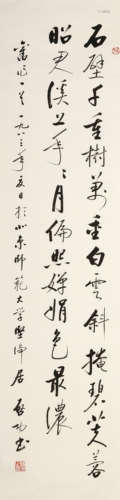 石壁千重樹萬重白雲斜掩碧芙蓉
昭君溪上年年月偏照嬋娟色最濃
舊作一首一九八三年夏日於北京師範大學堅淨居 啟功書